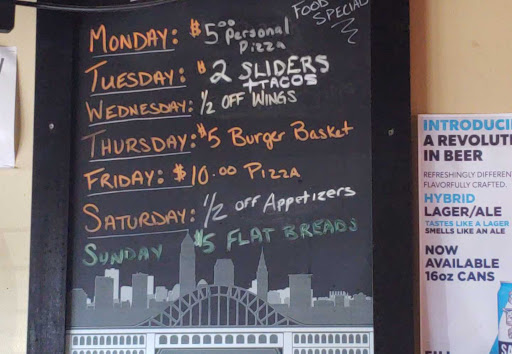 FOOD
SPECIALS
MONDAY: $5.00 Personal
Pizza
TUESDAY: $2 SLIDERS
+TACOS
WEDNESDAY: 1/2 OFF WINGS
THURSDAY: $5 Burger Basket
FRIDAY: $10.00 PIZZA
SATURDAY: 1/2 off Appetizers
SUNDAY $5 FLAT BREADS
INTRODUCI
A REVOLUTI
IN BEER
REFRESHINGLY DIFFEREN
FLAVORFULLY CRAFTED.
HYBRID
LAGER/ALE
TASTES LIKE A LAGER
SMELLS LIKE AN ALE
NOW
AVAILABLE
16oz CANS